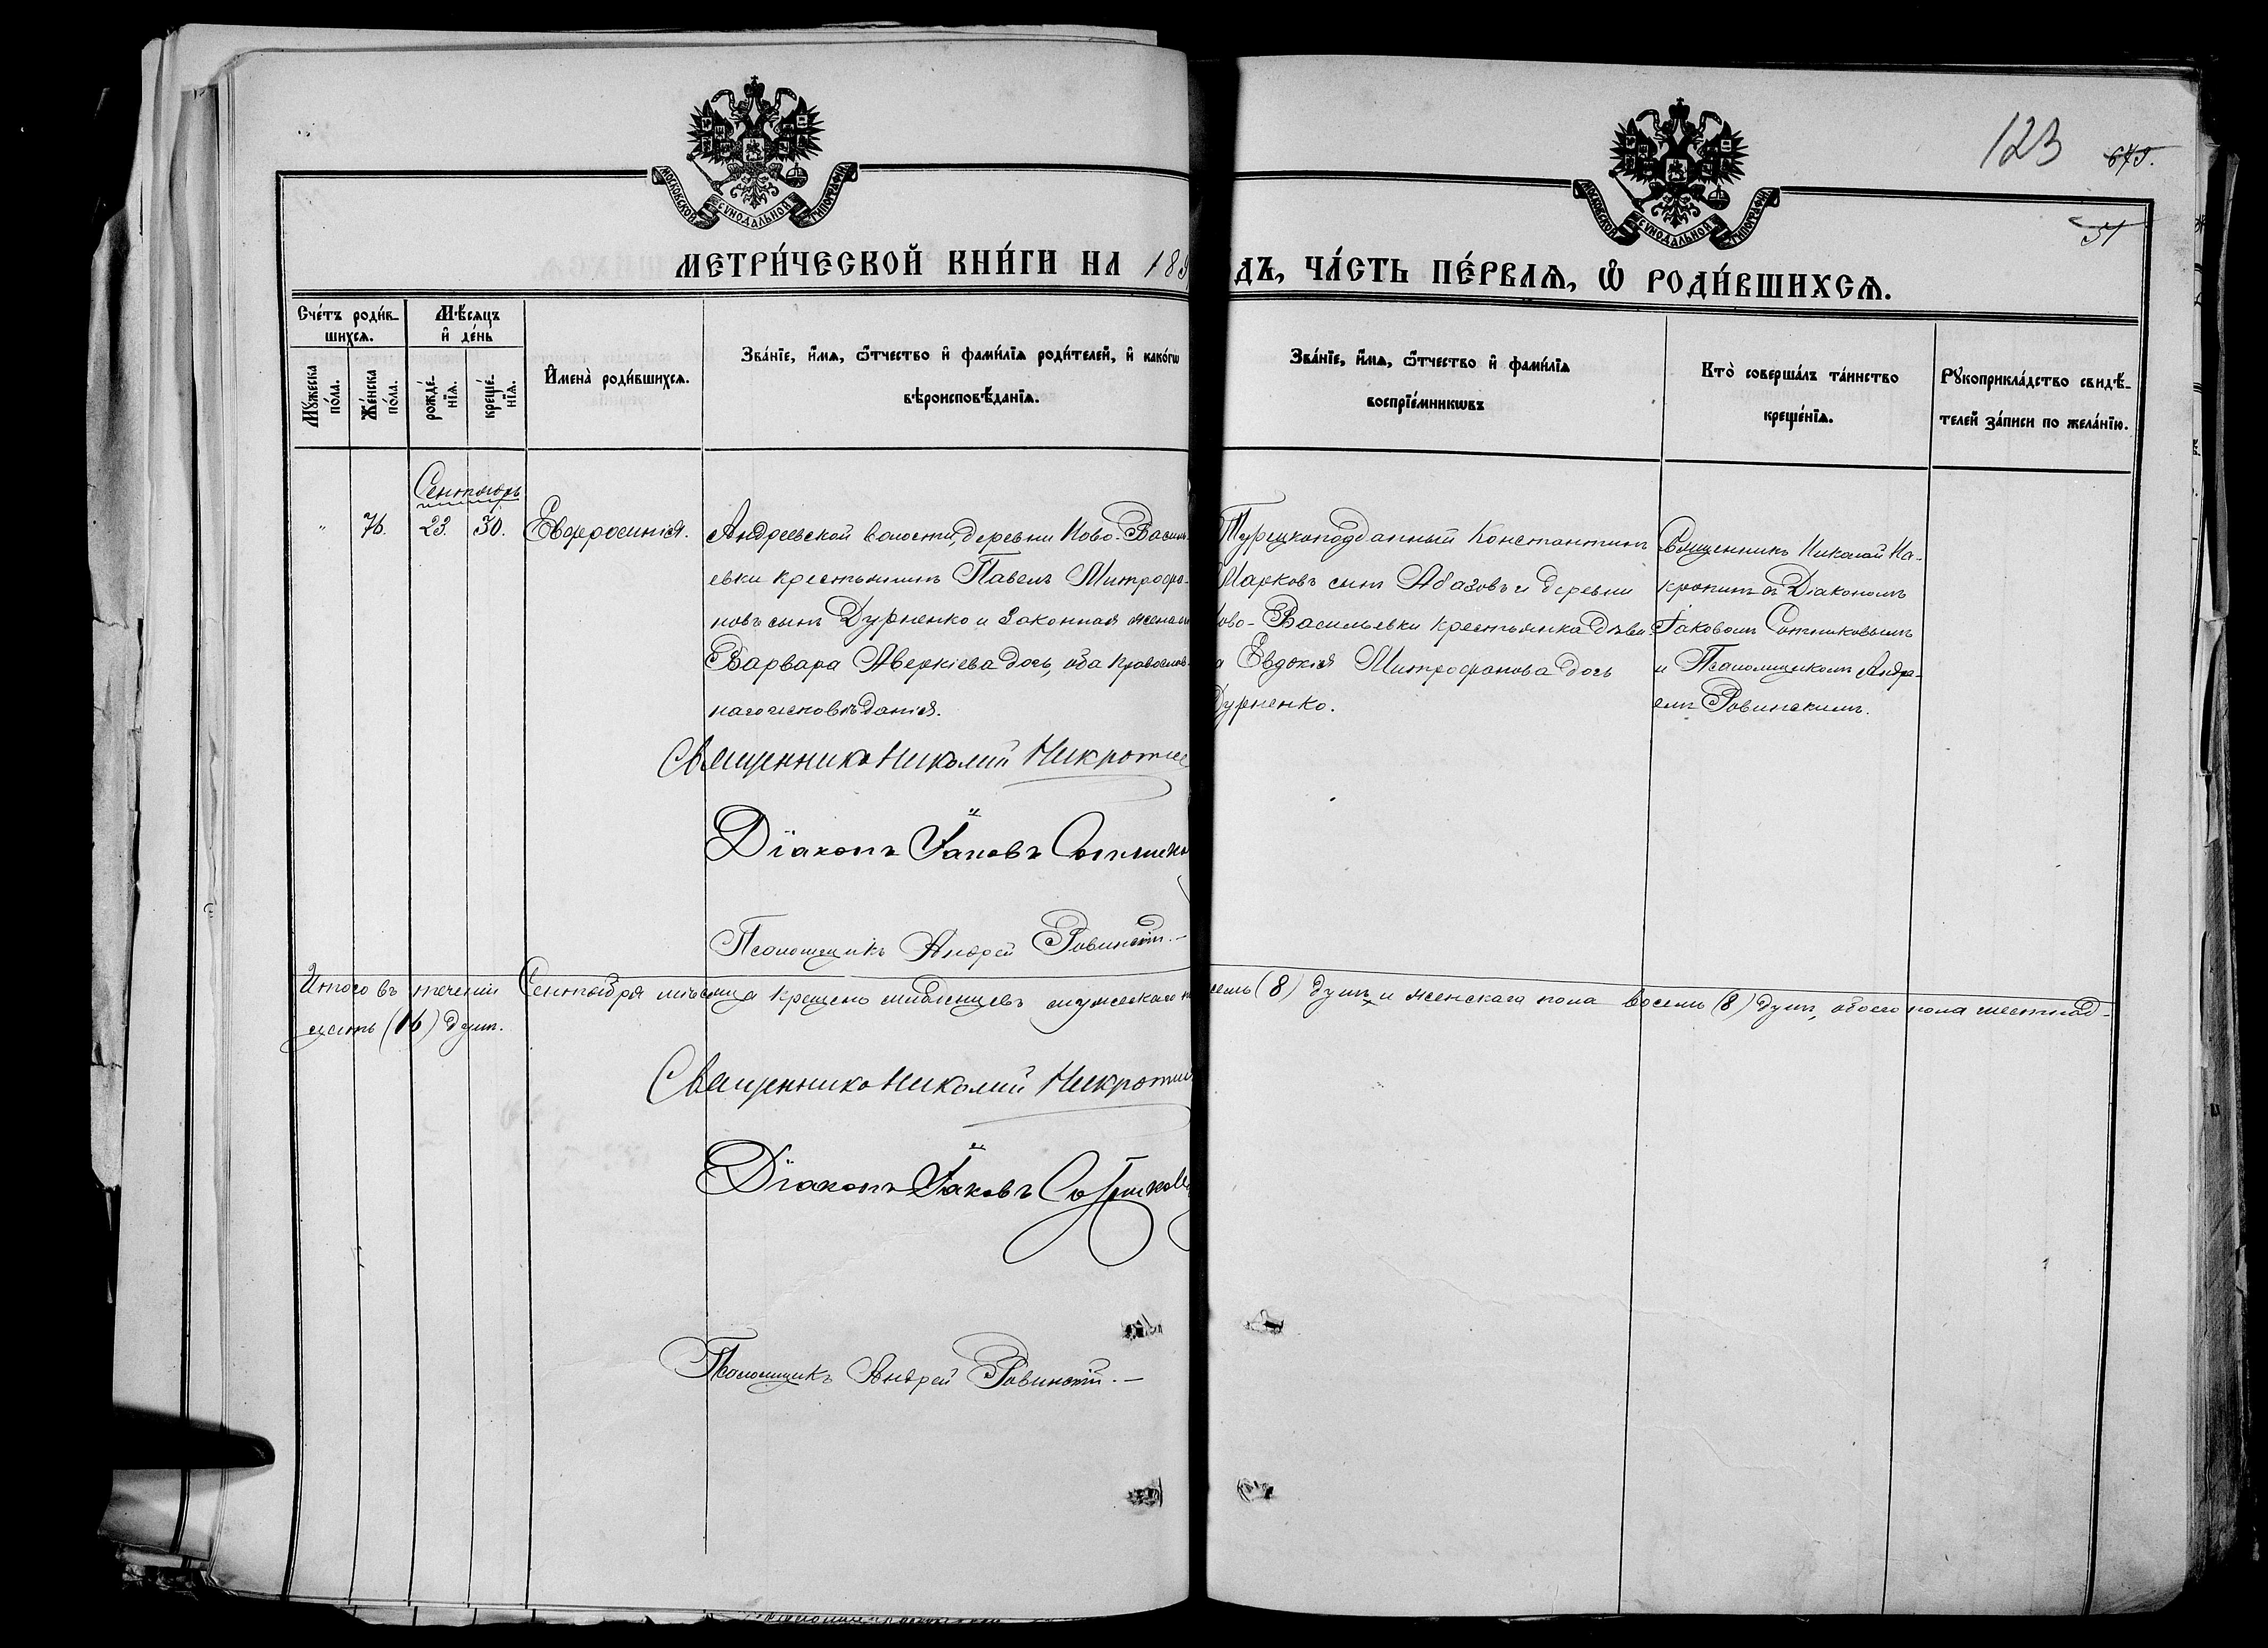 123 679.
51
МОСКОВСКОЙ СѴНОДАЛЬНОЙ ТИПОГРАФІИ
МОСКОВСКОЙ СѴНОДАЛЬНОЙ ТИПОГРАФІИ
МЕТРИ́ЧЕСКОЙ КНИ́ГИ НА 189
ДЪ, ЧА́СТЬ ПЕ́РВАѦ, Ѽ РОДИ́ВШИХСѦ.
Сче́тъ роди́в-
шихсѧ.
Мꙋ́жеска по́ла.
Же́нска по́ла.
Мѣ́сѧцъ
и҆ де́нь
рожде́-нїѧ.
креще́-нїѧ.
И҆мена̀ роди́вшихсѧ.
Зва́нїе, и҆́мѧ, ѿтчество и҆ фами́лїѧ роди́телей, и҆ како́гѡ
вѣроисповѣ́данїѧ.
Зва́нїе, и҆́мѧ, ѿтчество и҆ фами́лїѧ
воспрїе́мникѡвъ
Кто̀ соверша́лъ та́инство
креще́нїѧ.
Рꙋкоприкла́дство свидѣ́-
телей за́писи по жела́нїю.
Сентябрь
" 76. 23. 30. Евфросинія.
Андреевской волости, деревни Ново-Василь-
евки крестьянинъ Павелъ Митрофа-
новъ сынъ Дурненко и законная жена
Варвара Аверкіева дочь, оба православ-
наго исповѣданія.
Турецкоподданный Константинъ
Марковъ сынъ Абазовъ и деревни
ово-Васильевки крестьянка дѣви-
а Евдокія Митрофанова дочь
Дурненко.
Священникъ Николай На-
кропинъ съ Діакономъ
Іаковомъ Сотниковымъ
и Псаломщикомъ Андре-
емъ Ровинскимъ.
Священникъ Николай
Діаконъ Іаковъ Сотнико
Псаломщикъ Андрей Ровинскій.—
Итого въ теченіи Сентября мѣсяца крещено младенцевъ мужескаго п
семь (8) душъ и женскаго пола восемь (8) душъ, обоего пола шестнад-
цать (16) душъ.
Священникъ Николай
Діаконъ Іаковъ Сотников
Псаломщикъ Андрей Ровинскій.—